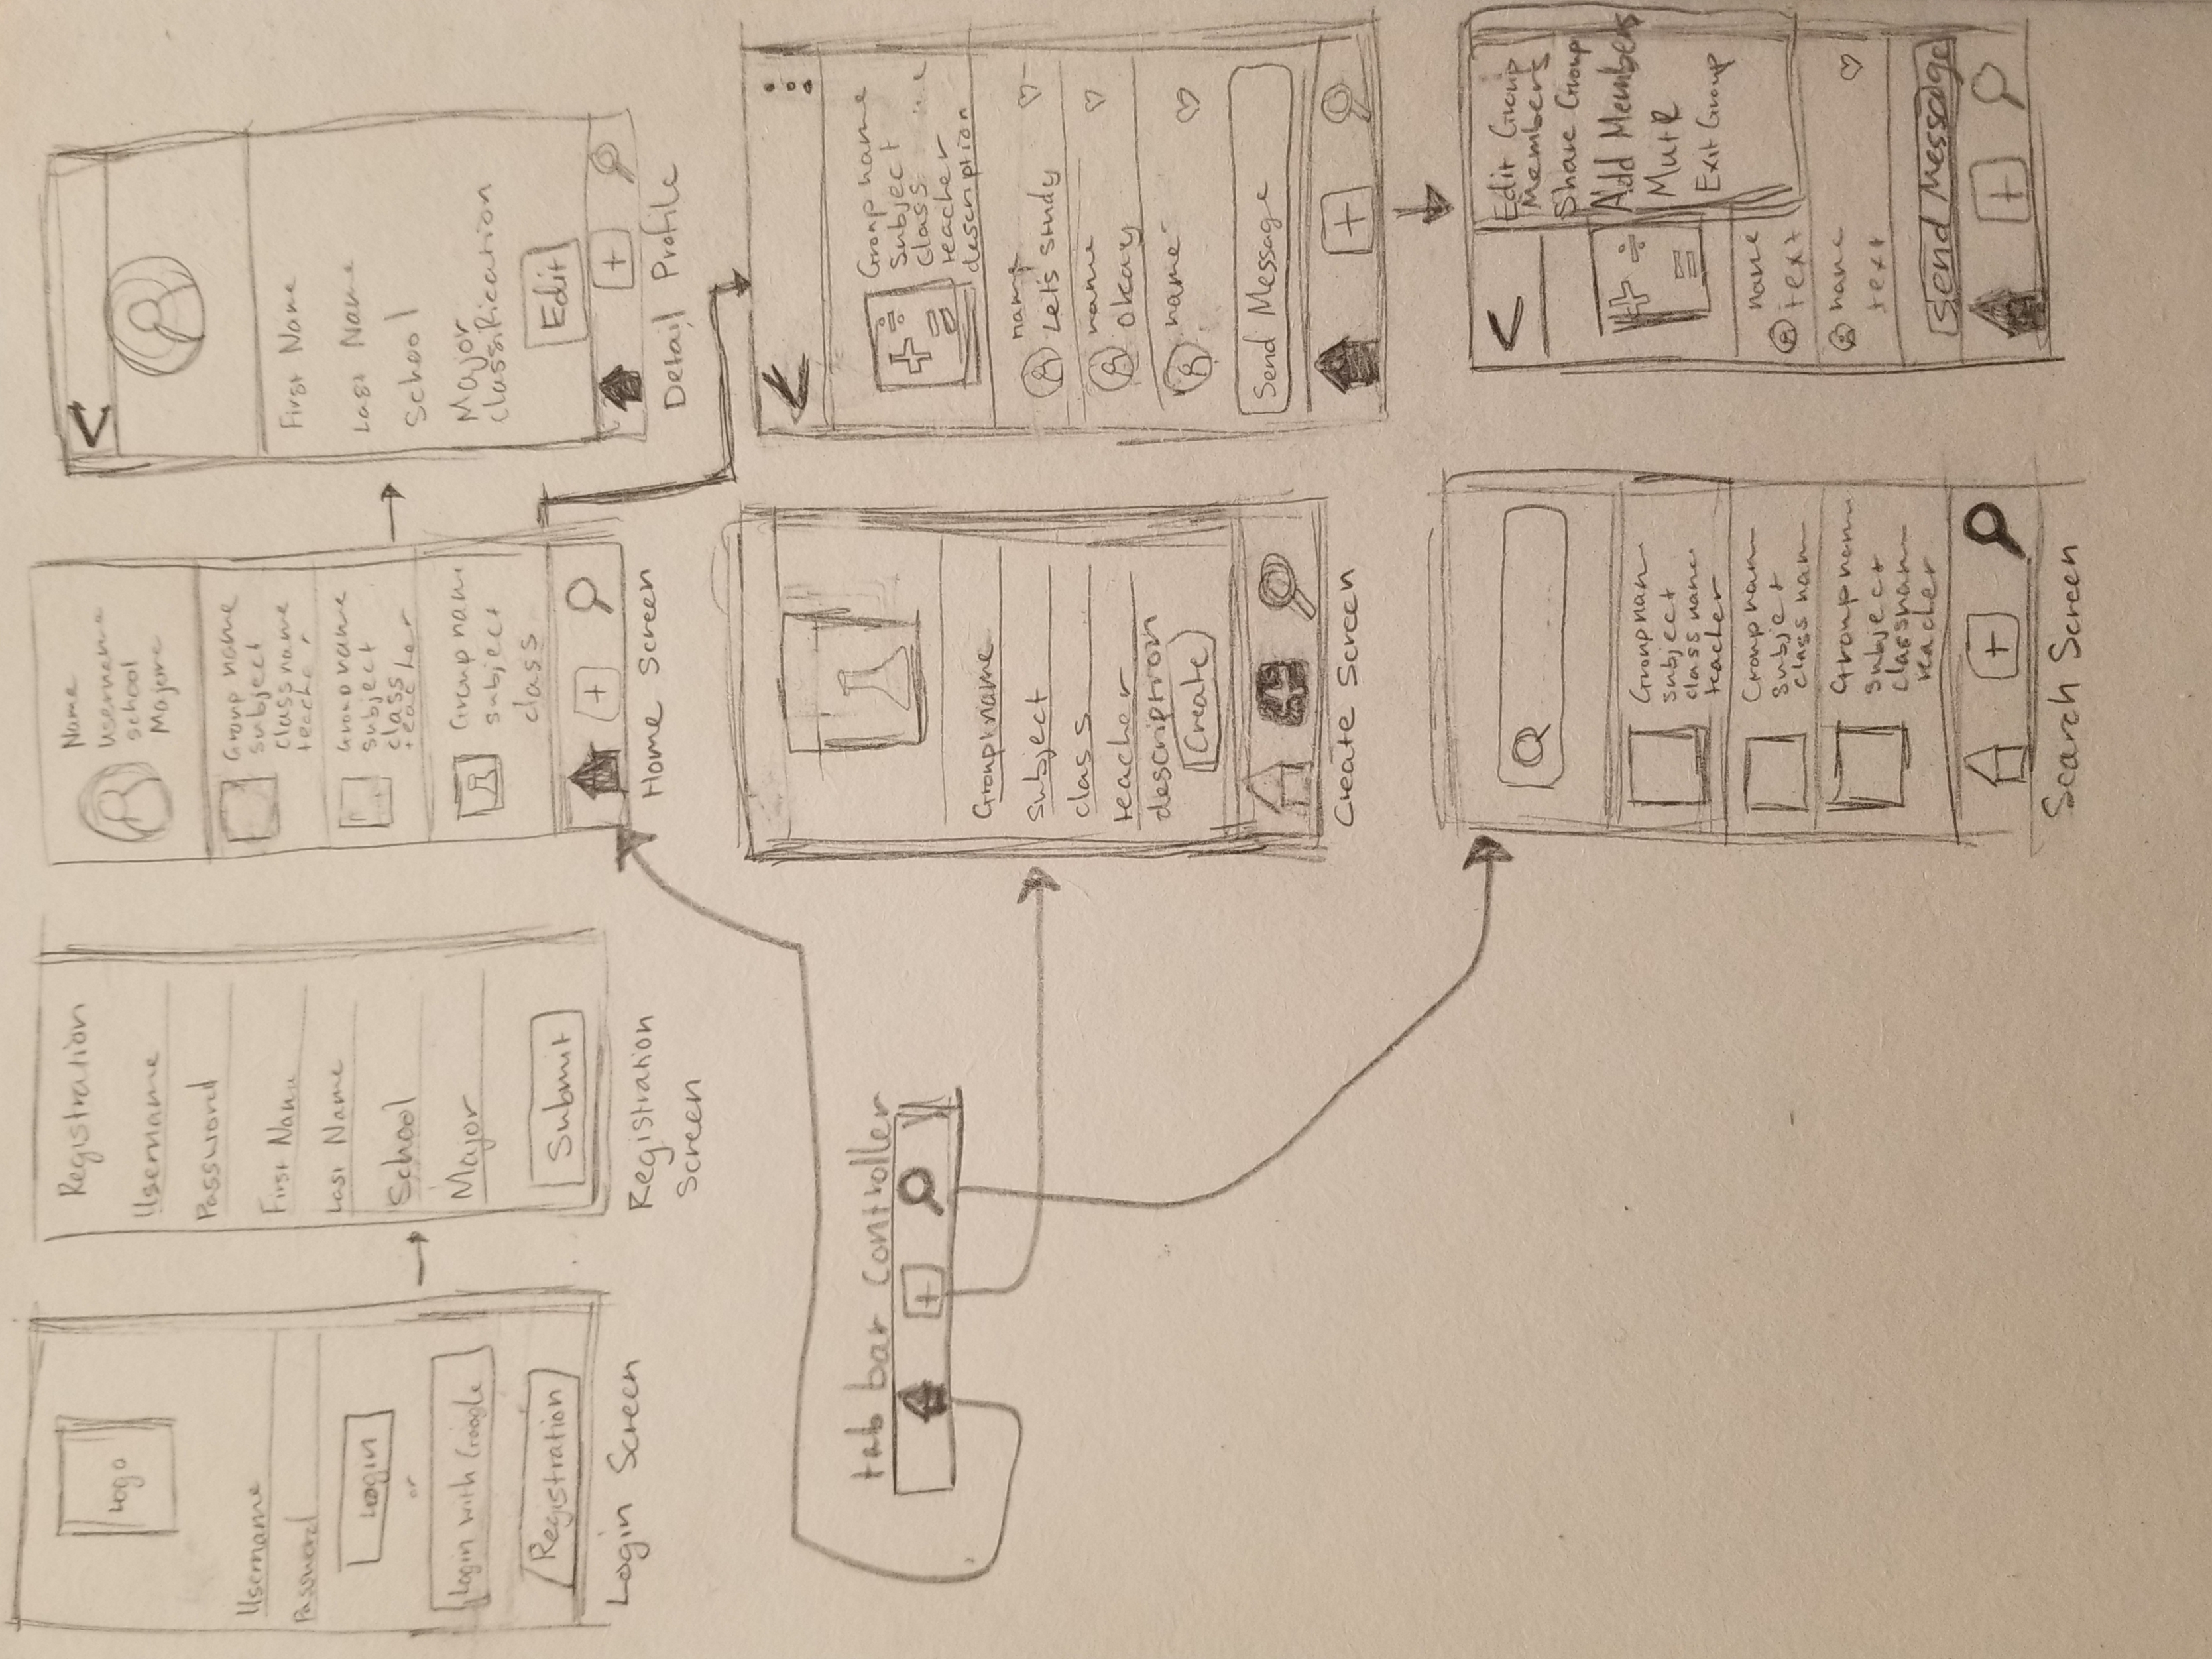 Logo
Username
Password
Login
or
Login with Google
Registration
Login Screen
Registration
Username
Password
First Name
Last Name
School
Major
Submit
Registration
Screen
Name
Username
school
Majore
Group name
subject
class name
teacher
Group name
subject
class
teacher
Group name
subject
class
Home Screen
First Name
Last Name
School
Major
classification
Edit
Detail Profile
tab bar controller
Group name
subject
class
teacher
description
Create
Create Screen
Group name
subject
class
teacher
description
name
Let's study
name
okay
name
Send Message
Group nam
subject
class name
teacher
Group nam
subject
class nam
Group nam
subject
class nam
teacher
Search Screen
Edit Group
Members
Share Group
Add Members
Mute
Exit Group
name
text
name
text
Send Message